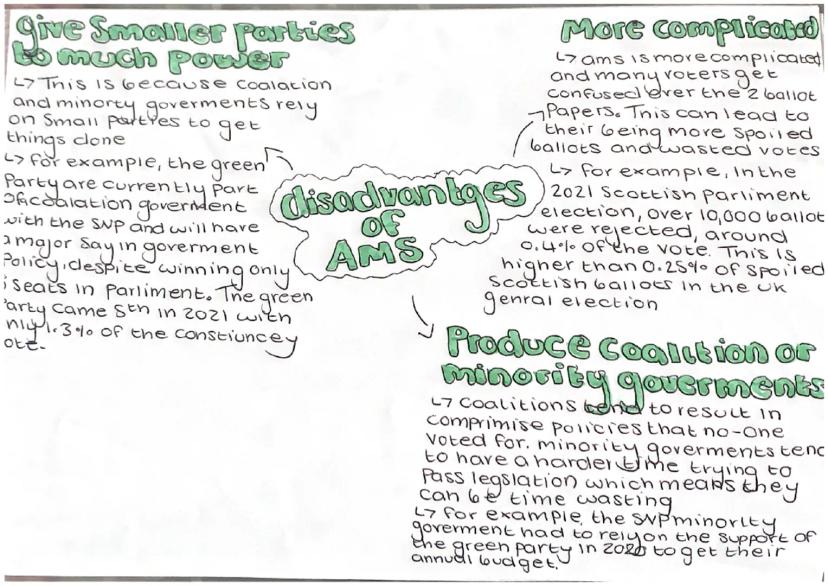 give Smaller Parties
to much power
↳ This is because coalation
and minorty goverments rely
on small parties to get
things done
↳ for example, the green
Party are currently part
of coalation goverment
with the SNP and will have
a major say in goverment
Policy, despite winning only
seats in Parliment. The green
arty came 5th in 2021 with
nly 1.3% of the constiuncey
ote.
disadvantges
of
AMS
More complicated
↳ ams is more complicated
and many voters get
confused over the 2 ballot
Papers. This can lead to
their being more spoiled
ballots and wasted votes
↳ for example, In the
2021 Scottish Parliment
election, over 10,000 ballot
were rejected, around
0.4% of the vote. This is
higher than 0.25% of spoiled
Scottish ballots in the UK
genral election
Produce Coalition or
minority goverments
↳ Coalitions tend to result in
comprimise policies that no-one
voted for. minority goverments tend
to have a harder time trying to
Pass legslation which means they
can be time wasting
↳ for example, the SNP minority
goverment had to rely on the support of
the green party in 2020 to get their
annual budget.